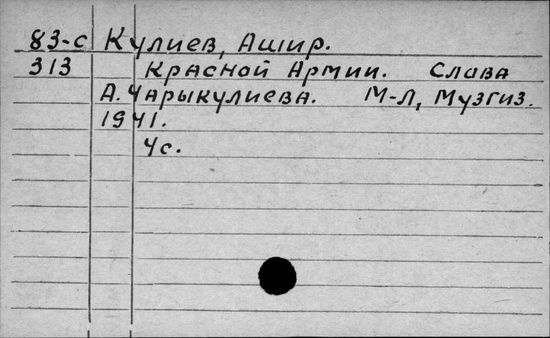 83-с Кулиев, Ашир.
313 Красной Армии. Слава
А. Чарыкулиева. М-Л, Музгиз.
1941.
4с.